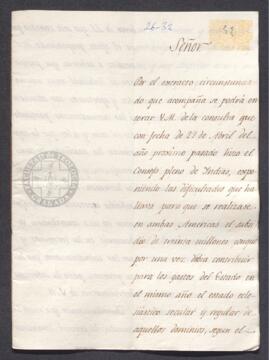 26-32
52
Señor
Por el extracto circunstancia
do que acompaña se podrá en
terar V.M. de la consulta que
con fecha de 29 de Abril del
año proximo pasado hizo el
Consejo pleno de Indias, expo
niendo las dificultades que ha
llava para que se realizase
en ambas Americas el subsi
dio de treinta millones conque
por una vez debia contribuir
para los gastos del Estado en
el mismo año el estado ecle
siastico secular y regular de
aquellos dominios, segun el